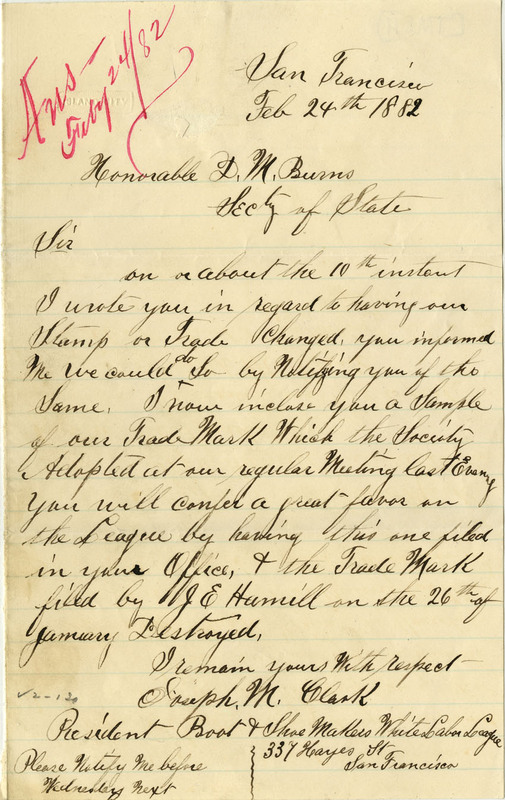 Ans
Feby 24/82
San Francisco
Feb 24th 1882
Honorable D. M. Burns
Secty of State
Sir
on or about the 10th instant
I wrote you in regard to having our
Stamp or Trade Changed, you informed
Me we could do So by Notifying you of the
Same. I now inclose you a Sample
of our Trade Mark Which the Society
Adopted at our regular Meeting last Evening
You will confer a great favor on
the League by having this one filed
in your Office, & the Trade Mark
filed by J E Hamill on the 26th of
January Destroyed,
I remain yours With respect
Joseph. M. Clark
President Boot & Shoe Makers White Labor League
337 Hayes St
San Francisco
Please Notify Me before
Wednesday Next